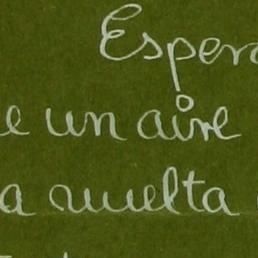 Espera
e un aire
a vuelta